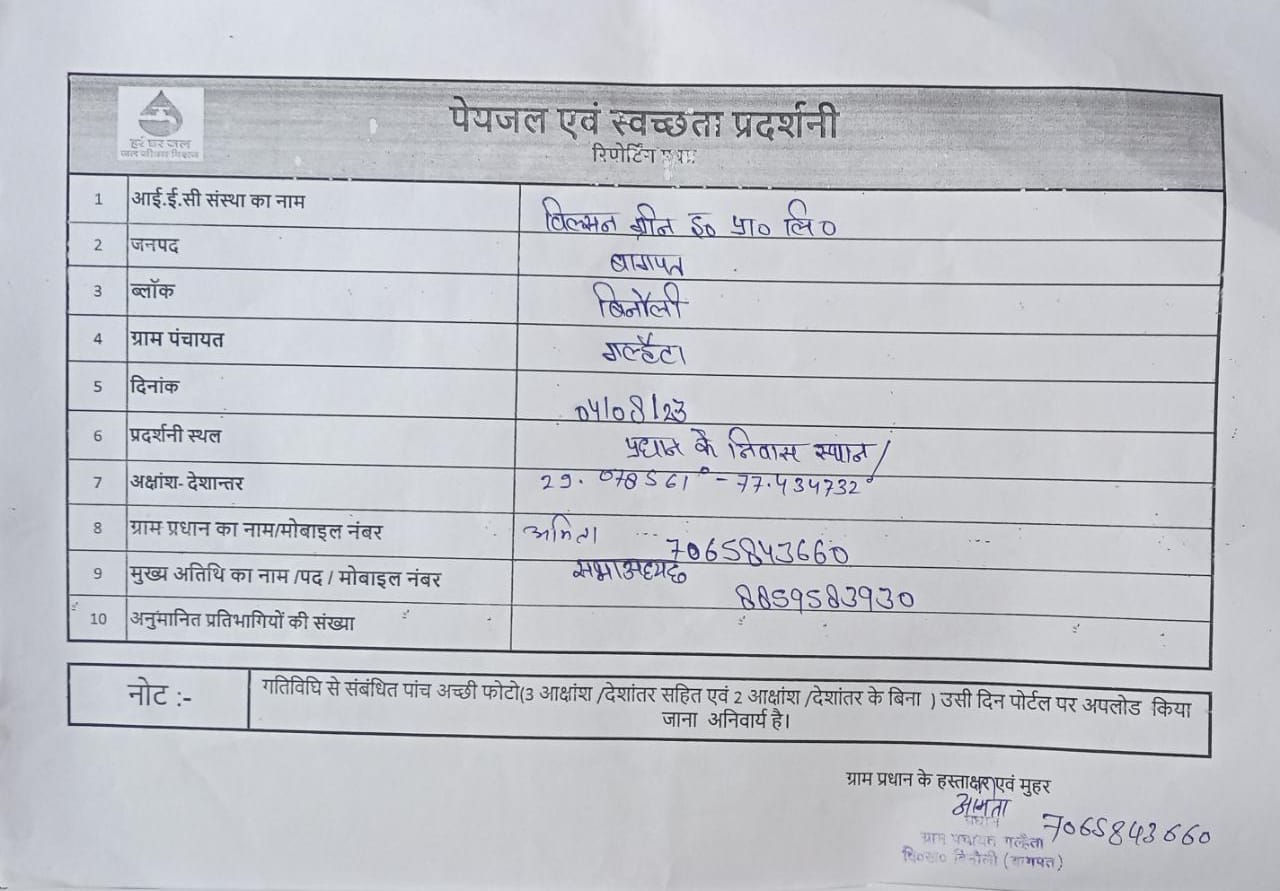 हर घर जल
जल जीवन मिशन
पेयजल एवं स्वच्छता प्रदर्शनी
रिपोर्टिंग प्रपत्र
1 आई.ई.सी संस्था का नाम विल्सन ग्रीन इ० प्रा० लि०
2 जनपद बागपत
3 ब्लॉक बिनौली
4 ग्राम पंचायत गल्हैटा
5 दिनांक 04/08/23
6 प्रदर्शनी स्थल प्रधान के निवास स्थान/
7 अक्षांश- देशान्तर 29.078561° - 77.434732°
8 ग्राम प्रधान का नाम/मोबाइल नंबर अमिता 7065843660
9 मुख्य अतिथि का नाम /पद / मोबाइल नंबर 8859583930
10 अनुमानित प्रतिभागियों की संख्या
नोट :- गतिविधि से संबंधित पांच अच्छी फोटो(3 आक्षांश /देशांतर सहित एवं 2 आक्षांश /देशांतर के बिना ) उसी दिन पोर्टल पर अपलोड किया
जाना अनिवार्य है।
ग्राम प्रधान के हस्ताक्षर एवं मुहर
7065843660
प्रधान
ग्राम पंचायत गल्हैता
वि०ख० बिनौली (बागपत)